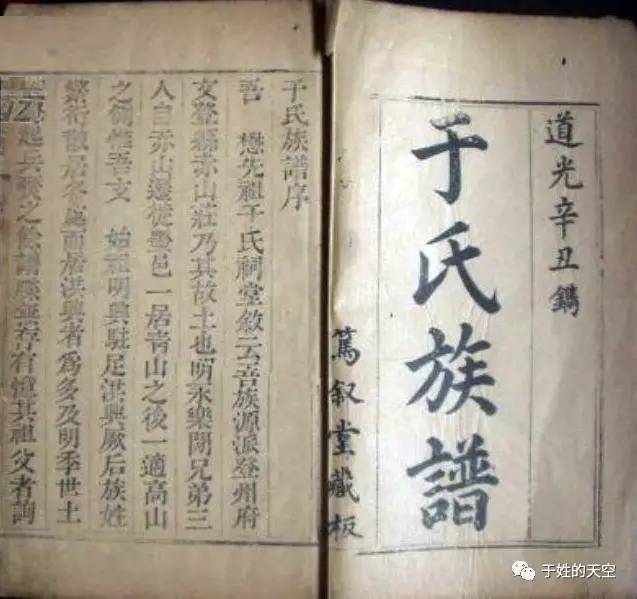 道光辛丑鐫
于氏族譜
篤叙堂藏板
于氏族譜序
吾 懋先祖于氏祠堂敘云吾族源派登州府
文登縣赤山莊乃其故土也明永樂間兄弟三
人自赤山遷徙邑一居青山之後一適高山
之側惟吾支 始祖明興駐足洪興厥后族姓
繁衍散居各處而居洪興者為多及明季世土
起兵燹之餘譜牒有憶其祖父者詢
于姓的天空